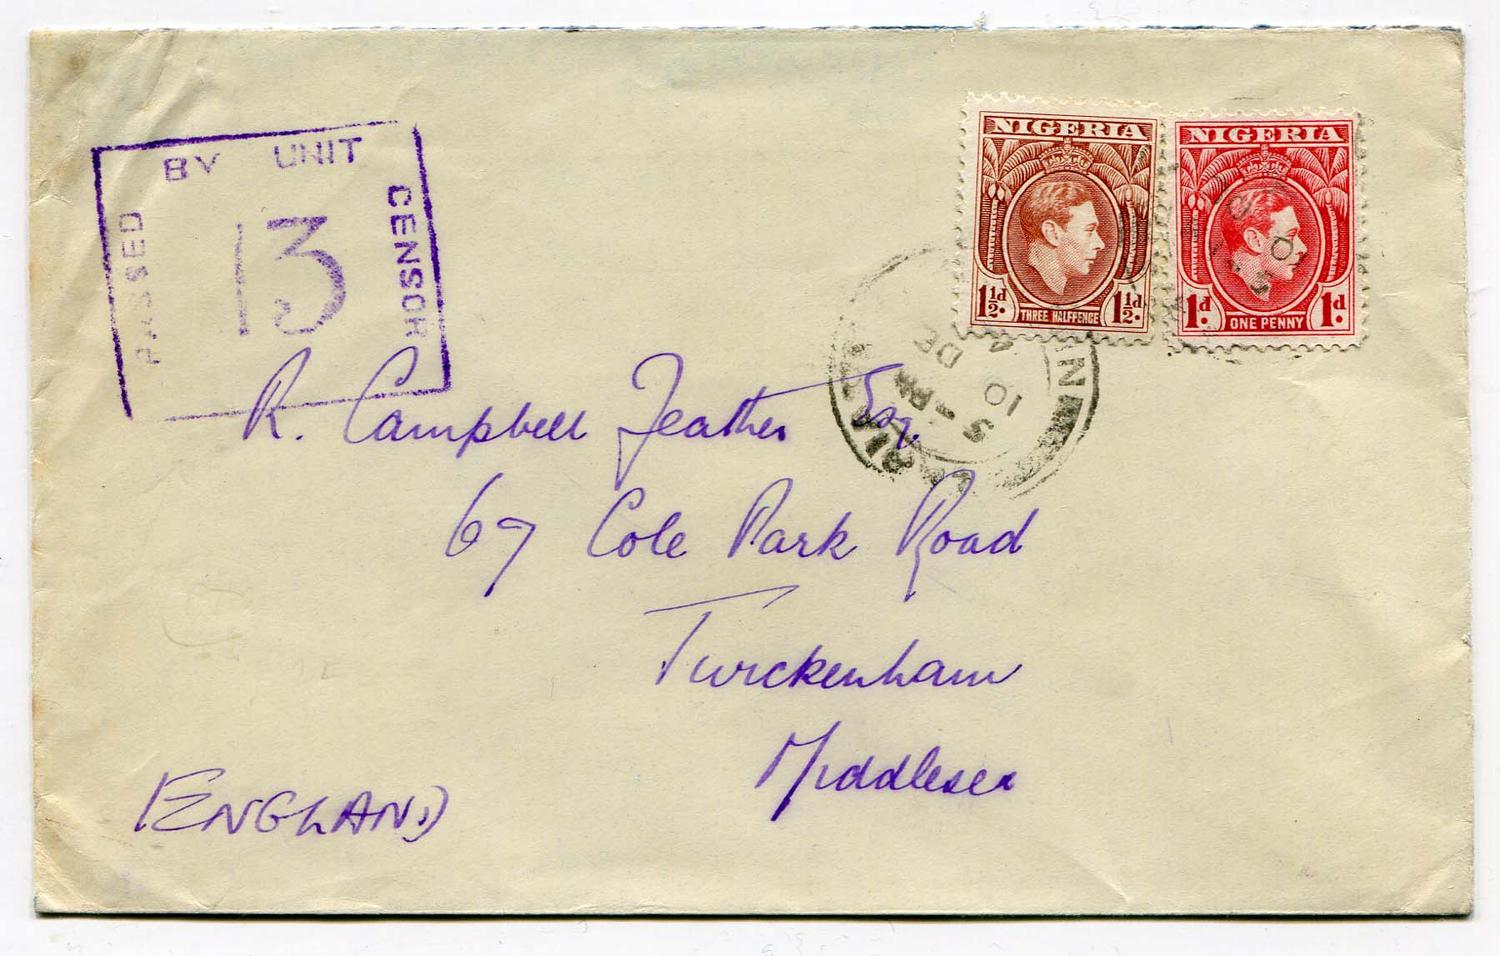 PASSED BY UNIT CENSOR
13
NIGERIA
1½d. THREE HALFPENCE 1½d.
NIGERIA
1d. ONE PENNY 1d.
5 PM
10 DE
R. Campbell Feather Esq.
67 Cole Park Road
Twickenham
Middlesex
(ENGLAND)